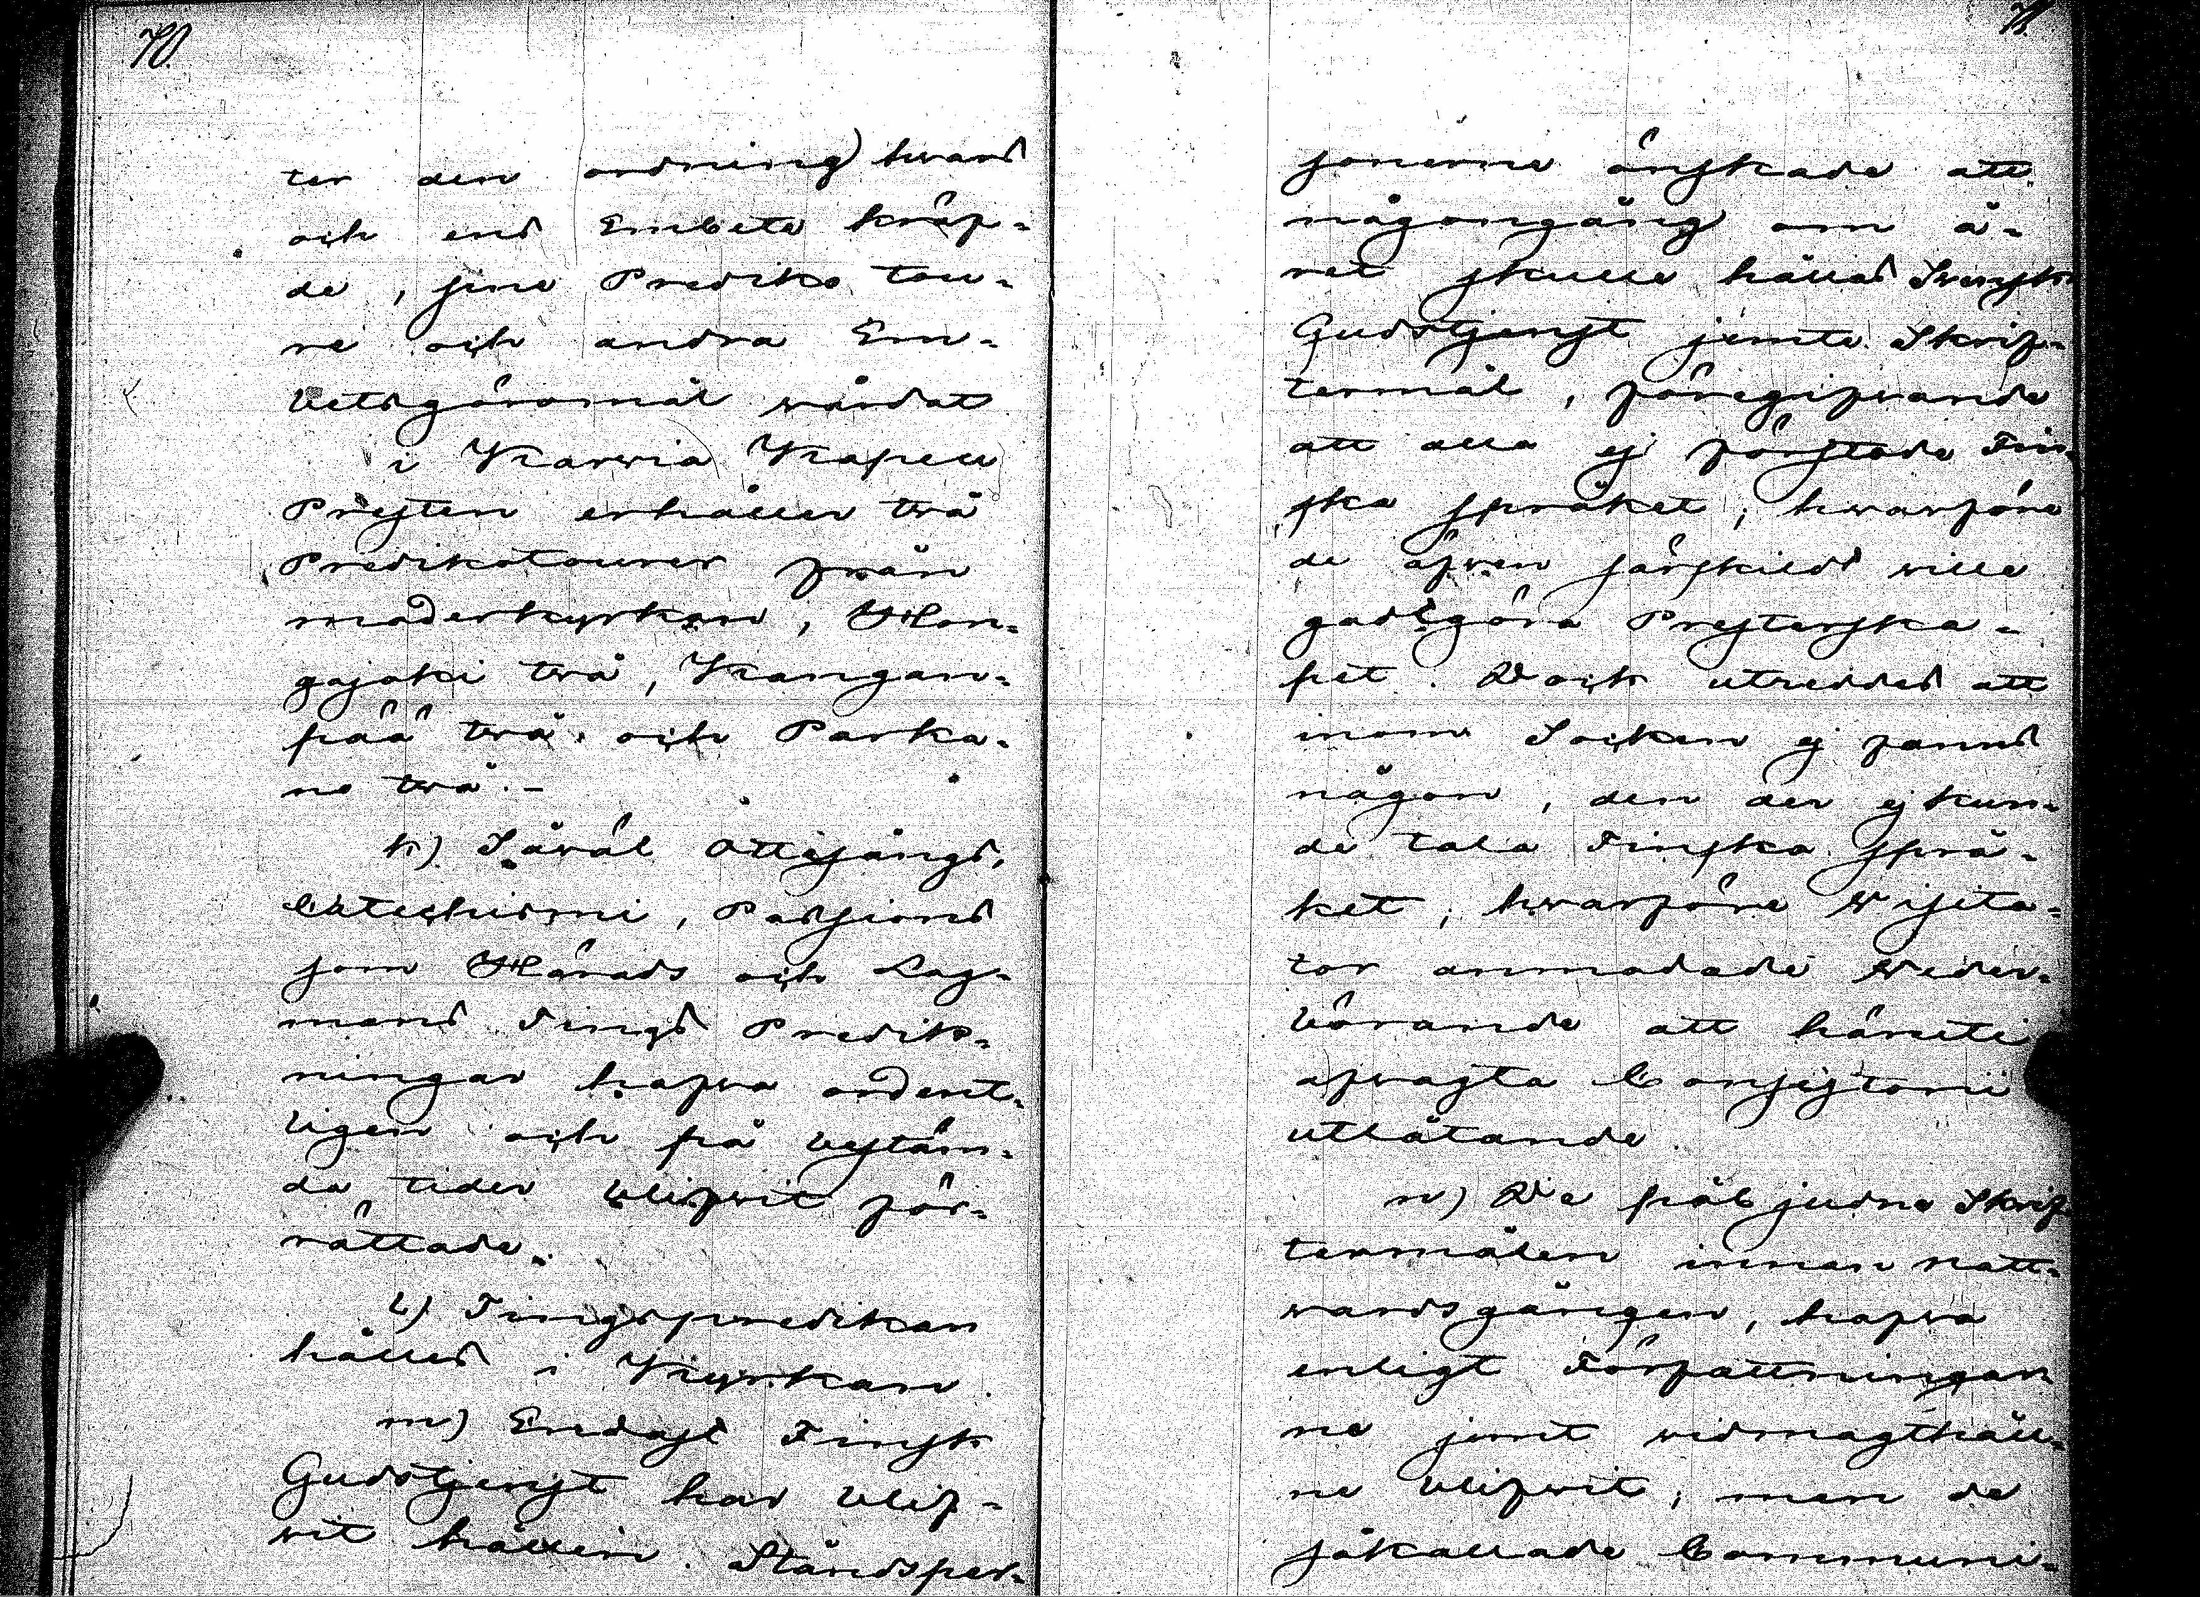 70.
ter den ordning hvars
och ens Embete kräf-
de, sine Prediko tou-
re och andra Em-
betsgöromål vårdat
i Karvia Kapell
Presten erhåller två
Predikotourer från
moderkyrkan, Hon-
gajoki två, Kangan-
pää två och Parka-
no två. -
k) Såväl Ottesångs,
Catechismi, Passions
som Härads och Lag-
mans Tings Predik-
ningar hafva ordent-
ligen och på bestäm-
da tider blifvit för-
rättade.
l) Tingspredikan
hålles i Kyrkan.
m) Endast Finsk
Gudstjenst har blif-
vit hållen. Ståndsper-
71.
sonerne önskade att
någongång om å-
ret skulle hållas Svensk
Gudstjenst jemte Skrif-
termål, föregifvande
att alla ej förstode Fin-
ska språket, hvarföre
de äfven särskildt ville
godtgöra Presterska-
pet. Dock utreddes att
inom Socken ej fanns
någon, den der ej kun-
de tala Finska språ-
ket, hvarföre Visita-
tor anmodade Veder-
börande att häruti
afvagta Consistorii
utlåtande.
n) De påbjudne Skrif-
termålen innan natt-
vardsgången, hafva
enligt Författningar-
ne jemt vidmagthåll-
ne blifvit, men de
såkallade Communi-